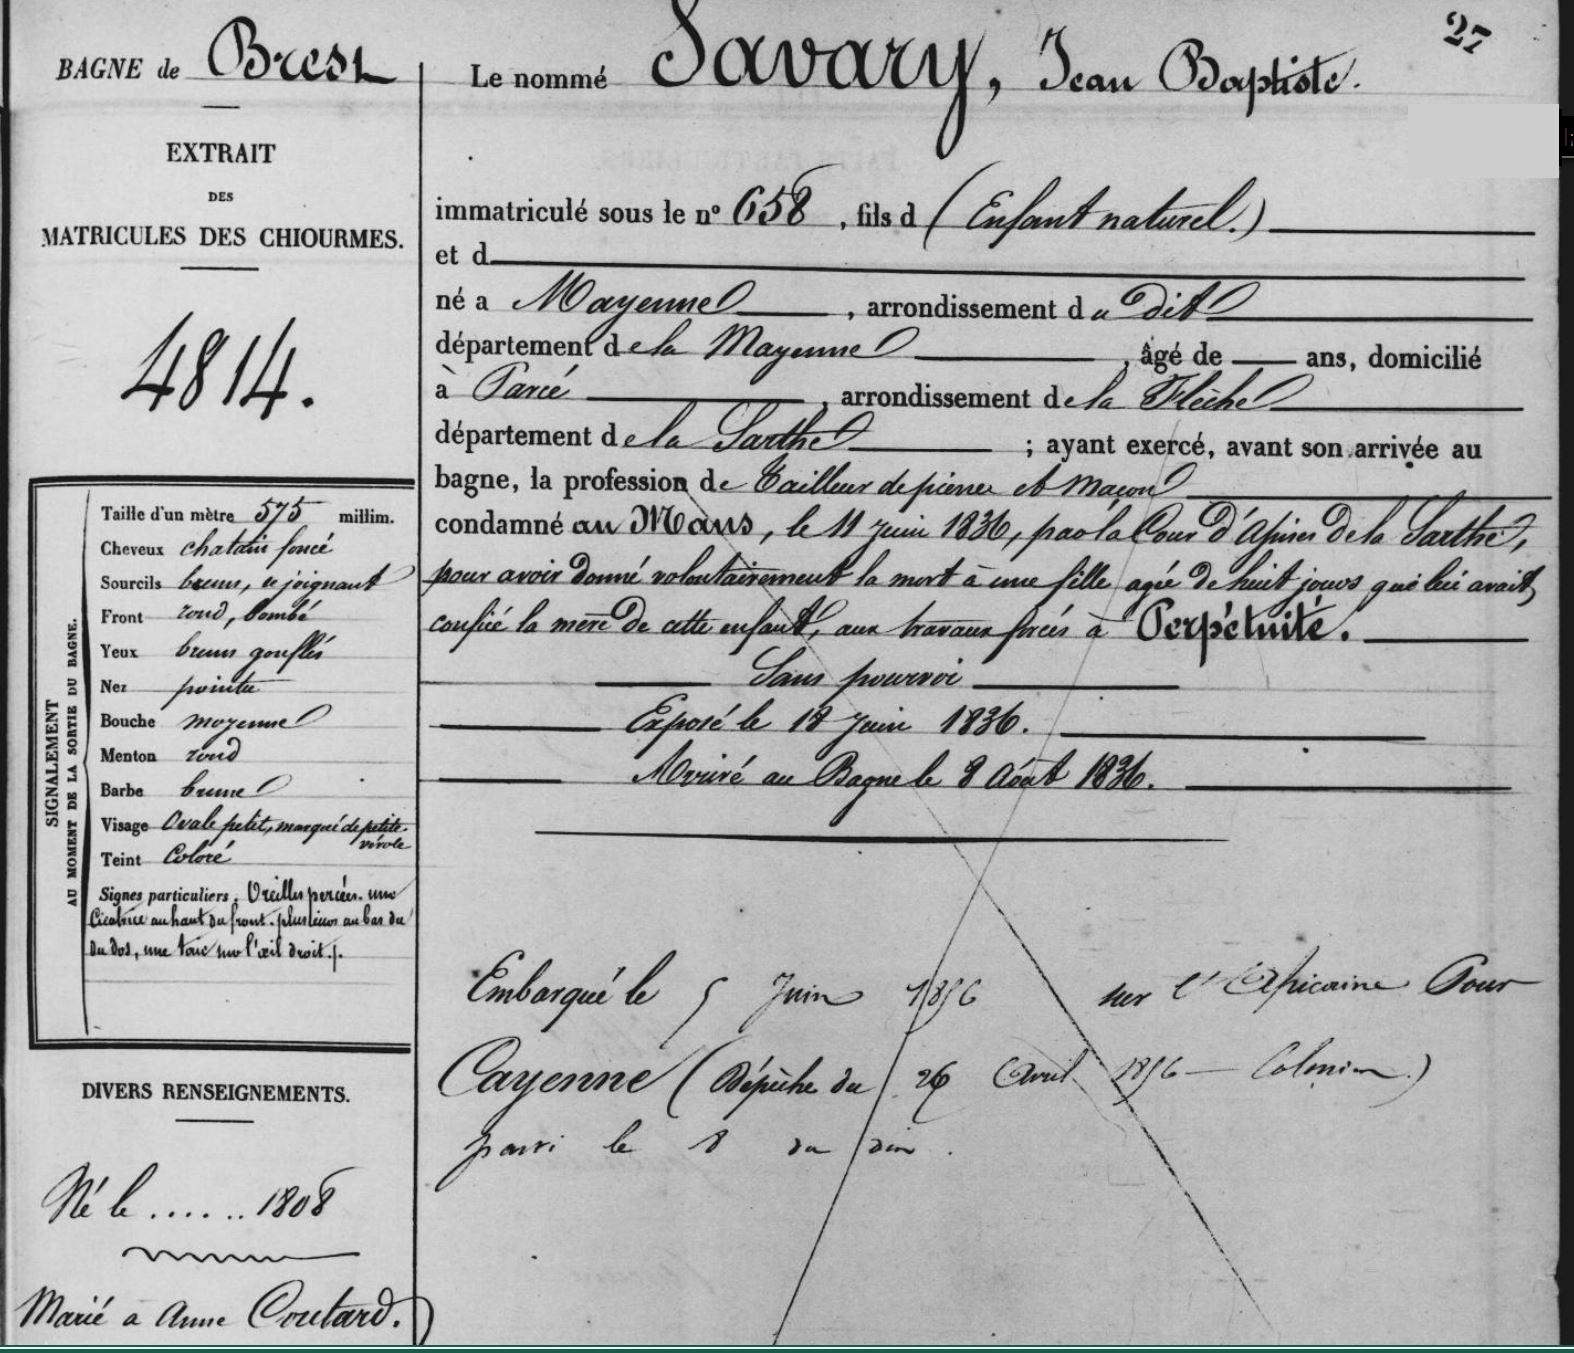 27
BAGNE de Brest
EXTRAIT
DES
MATRICULES DES CHIOURMES.
4814.
SIGNALEMENT
AU MOMENT DE LA SORTIE DU BAGNE.
Taille d'un mètre 575 millim.
Cheveux chatain foncé
Sourcils bruns, se joignant
Front rond, bombé
Yeux bruns gonflés
Nez pointu
Bouche moyenne
Menton rond
Barbe brune
Visage Ovale petit, marqué de petite-
vérole
Teint Coloré
Signes particuliers. Oreilles percées. une
Cicatrice au haut du front. plusieurs au bas du
du dos, une taie sur l'œil droit.
DIVERS RENSEIGNEMENTS.
Né le ...... 1808
Marié a Anne Coutard.
Le nommé Savary, Jean Baptiste.
immatriculé sous le nº 658, fils d (Enfant naturel.)
et d
né a Mayenne, arrondissement du dit
département de la Mayenne, âgé de ans, domicilié
à Parcé, arrondissement de la Flèche
département de la Sarthe ; ayant exercé, avant son arrivée au
bagne, la profession de Tailleur de pierres et Maçon
condamné au Mans, le 11 juin 1836, par la Cour d'assises de la Sarthe,
pour avoir donné volontairement la mort à une fille agée de huit jours que lui avait
confiée la mère de cette enfant, aux travaux forcés à Perpétuité.
Sans pourvoi
Exposé le 18 Juin 1836.
Arrivé au Bagne le 8 Août 1836.
Embarqué le 5 Juin 1856 sur l'Africaine Pour
Cayenne (Dépêche du 26 Avril 1856 — Colonies.)
parti le 8 du dit.